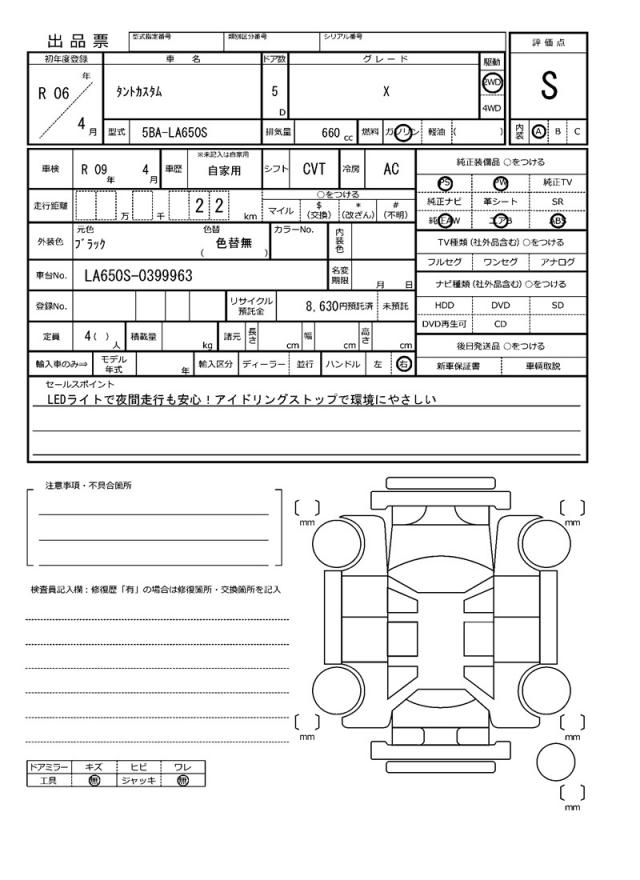 出品票
型式指定番号 類別区分番号 シリアル番号
初年度登録 車名 ドア数 グレード 駆動
R 06 年 4 月
タントカスタム 5 D X 2WD 4WD
型式 5BA-LA650S 排気量 660 cc 燃料 ガソリン 軽油 ( )
評価点
S
内装 A B C
車検 R 09 年 4 月 車歴 ※未記入は自家用 自家用 シフト CVT 冷房 AC
走行距離 万 千 2 2 km ○をつける
マイル $ (交換) * (改ざん) # (不明)
外装色 元色 ブラック 色替 色替無 ( ) カラーNo. 内装色
車台No. LA650S-0399963 名変期限 月 日
登録No. リサイクル預託金 8,630円預託済 未預託
定員 4( ) 人 積載量 kg 諸元 長さ cm 幅 cm 高さ cm
輸入車のみ⇒ モデル年式 年 輸入区分 ディーラー 並行 ハンドル 左 右
純正装備品 ○をつける
PS PW 純正TV
純正ナビ 革シート SR
純正AW エアB ABS
TV種類 (社外品含む) ○をつける
フルセグ ワンセグ アナログ
ナビ種類 (社外品含む) ○をつける
HDD DVD SD
DVD再生可 CD
後日発送品 ○をつける
新車保証書 車輌取説
セールスポイント
LEDライトで夜間走行も安心！アイドリングストップで環境にやさしい
注意事項・不具合箇所
検査員記入欄：修復歴「有」の場合は修復箇所・交換箇所を記入
mm
mm
mm
mm
mm
ドアミラー キズ ヒビ ワレ
工具 無 ジャッキ 無